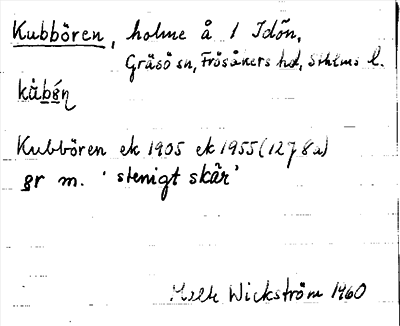 Kubbören, holme å 1 Idön,
Gräsö sn, Frösåkers hd, Sthlms l.
Kubbören ek 1905 ek 1955 (1278a)
gr m. 'stenigt skär'
Wickström 1960